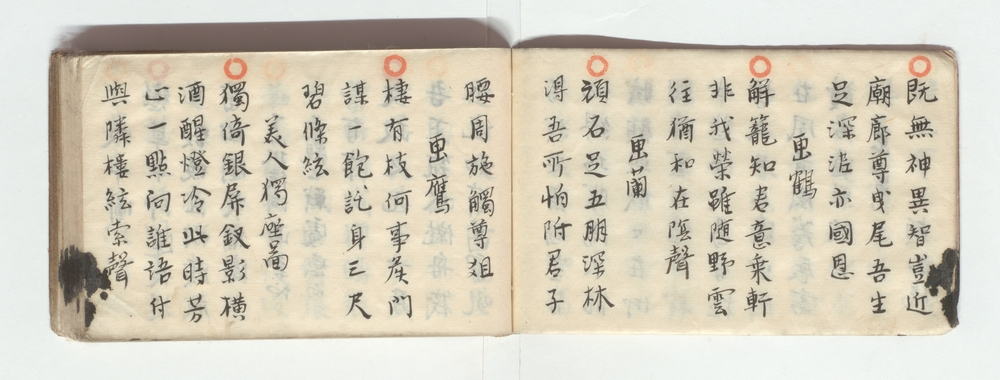 既無神異智豈近
廟廊尊曳尾吾生
足深沾亦國恩
画鶴
解籠知君意乗軒
非我榮雖随野雲
往猶和在陰聲
画蘭
頑石足五朋深林
得吾所怕附君子
腰周旋觸尊俎
画鷹
棲有枝何事矦門
謀一飽託身三尺
碧絛絃
美人獨座畄
獨倚銀屏釵影横
酒醒燈冷此時芳
心一點向誰語付
與隣樓絃索聲